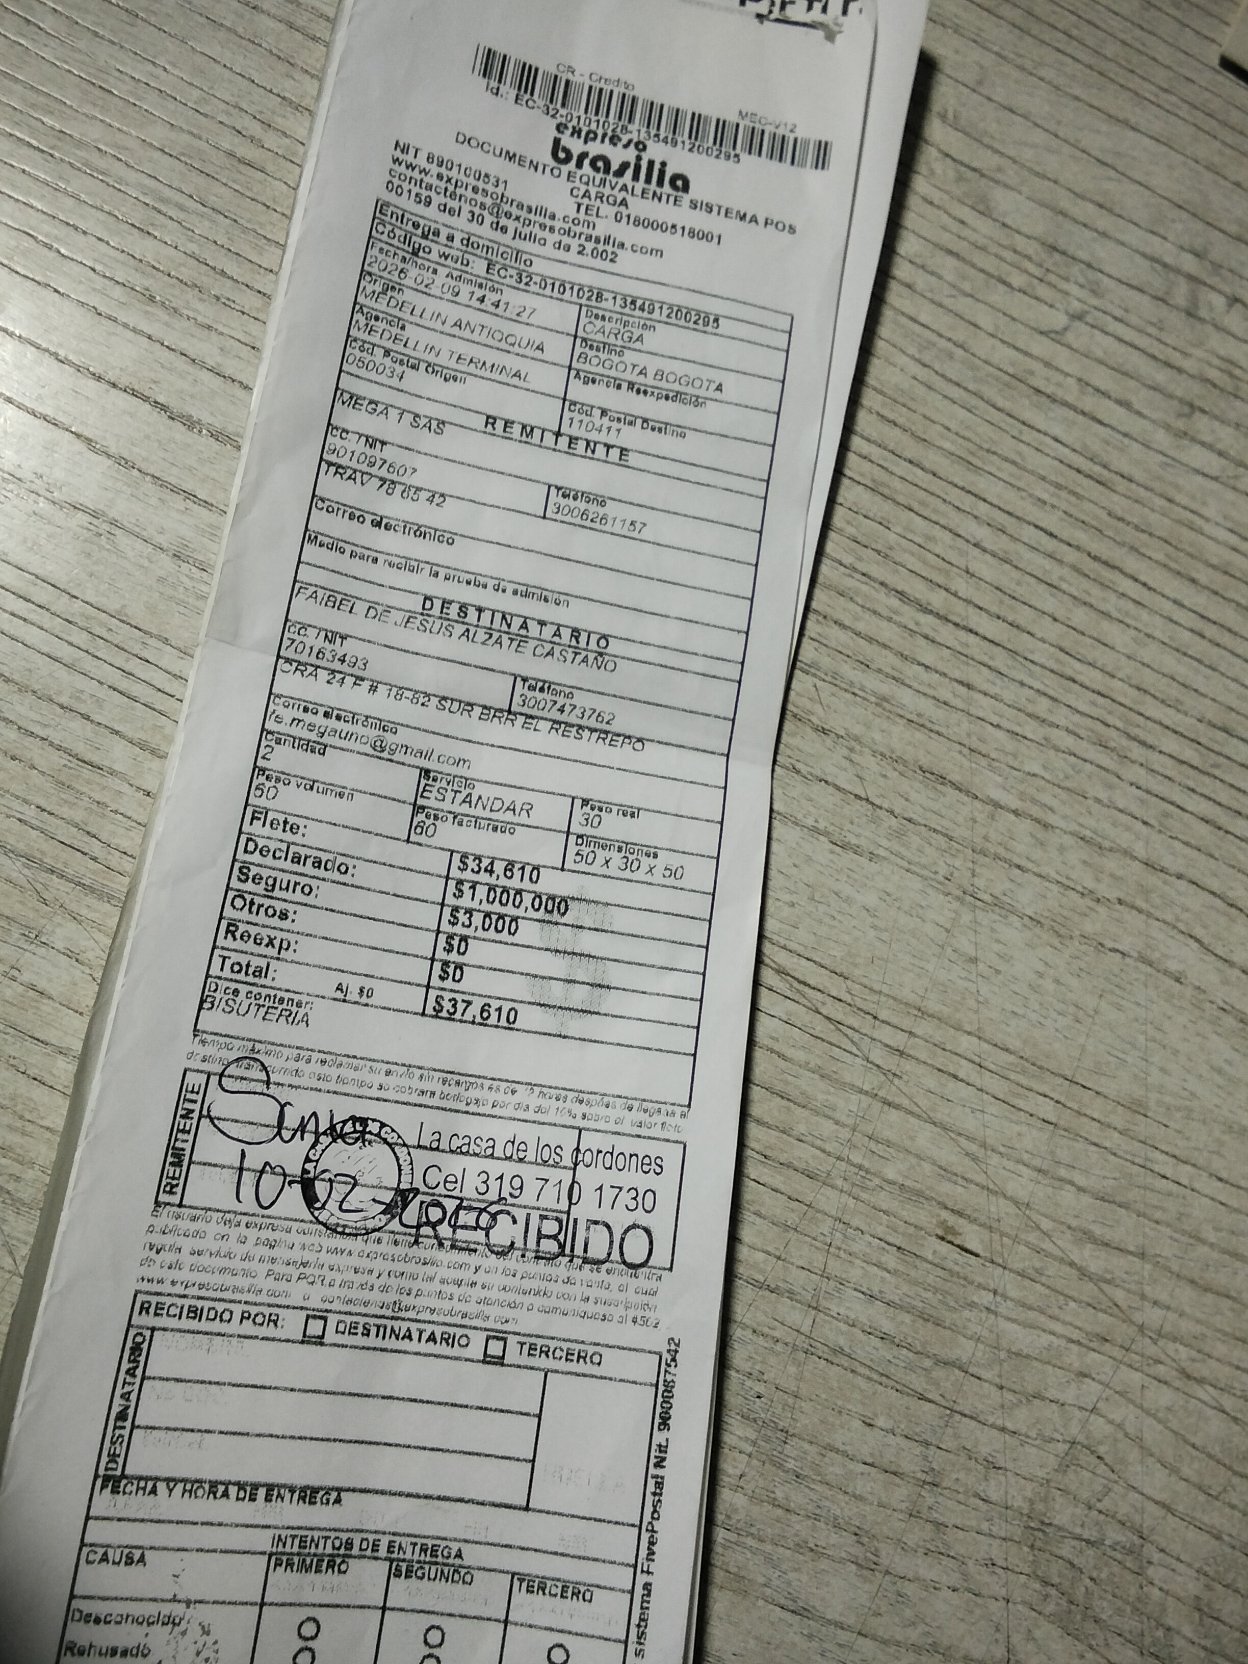 CR - Credito
MEC-V12
Id.: EC-32-0101028-135491200295
expreso
brasilia
DOCUMENTO EQUIVALENTE SISTEMA POS
CARGA
NIT 890100531
TEL. 018000518001
www.expresobrasilia.com
contactenos@expresobrasilia.com
00159 del 30 de julio de 2.002
Entrega a domicilio
Código web: EC-32-0101028-135491200295
Fecha/hora Admisión
2026-02-09 14:41:27
Descripción
CARGA
Origen
MEDELLIN ANTIOQUIA
Destino
BOGOTA BOGOTA
Agencia
MEDELLIN TERMINAL
Agencia Reexpedición
Cód. Postal Origen
050034
Cód. Postal Destino
110411
REMITENTE
MEGA 1 SAS
CC. / NIT
901097607
Teléfono
3006261157
TRAV 78 65 42
Correo electrónico
Medio para recibir la prueba de admisión
DESTINATARIO
FAIBEL DE JESUS ALZATE CASTAÑO
CC. / NIT
70163493
Teléfono
3007473762
CRA 24 F # 18-82 SUR BRR EL RESTREPO
Correo electrónico
fe.megauno@gmail.com
Cantidad
2
Servicio
ESTANDAR
Peso real
30
Peso volumen
60
Peso facturado
60
Dimensiones
50 x 30 x 50
Flete: $34,610
Declarado: $1,000,000
Seguro: $3,000
Otros: $0
Reexp: $0
Total: Aj. $0 $37,610
Dice contener:
BISUTERIA
Tiempo máximo para reclamar su envío sin recargos es de 72 horas después de llegada al
destino, transcurrido este tiempo se cobrara bodegaje por día del 10% sobre el valor flete
REMITENTE
La casa de los cordones
Cel 319 710 1730
10-02-2026
RECIBIDO
El usuario deja expresa constancia que tiene conocimiento del contrato que se encuentra
publicado en la pagina web www.expresobrasilia.com y en los puntos de venta, el cual
regula servicio de mensajería expresa y como tal acepta su contenido con la suscripción
de este documento. Para PQR a través de los puntos de atención o comuníquese al 4562
www.expresobrasilia.com o contactenos@expresobrasilia.com
RECIBIDO POR: DESTINATARIO TERCERO
DESTINATARIO
FECHA Y HORA DE ENTREGA
INTENTOS DE ENTREGA
CAUSA PRIMERO SEGUNDO TERCERO
Desconocido
Rehusado
sistema FivePostal Nit. 900087542